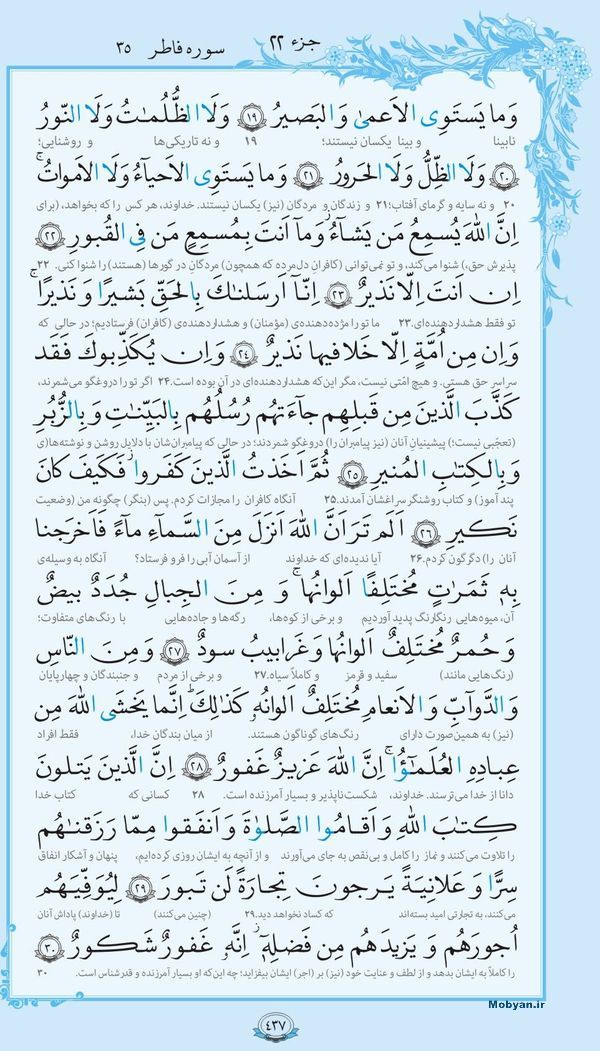 جزء ۲۲ سوره فاطر ۳۵
وَما يَستَوِى الاَعمىٰ وَالبَصيرُ ﴿١٩﴾ وَلَا الظُّلُمـٰتُ وَلَا النّورُ
نابینا و بینا یکسان نیستند؛ ۱۹ و نه تاریکی‌ها و روشنایی؛
﴿٢٠﴾ وَلَا الظِّلُّ وَلَا الحَرورُ ﴿٢١﴾ وَما يَستَوِى الاَحياۤءُ وَلَا الاَمواتُ ۚ
۲۰ و نه سایه و گرمای آفتاب؛ ۲۱ و زندگان و مردگان (نیز) یکسان نیستند. خداوند، هر کس را که بخواهد، (برای
اِنَّ اللهَ يُسمِعُ مَن يَشاۤءُ ۖ وَماۤ اَنتَ بِمُسمِعٍ مَن فِى القُبورِ ﴿٢٢﴾
پذیرش حق،) شنوا می‌کند، و تو نمی‌توانی (کافرانِ دل‌مرده که همچون) مردگانِ در گورها (هستند) را شنوا کنی. ۲۲
اِن اَنتَ اِلّا نَذيرٌ ﴿٢٣﴾ اِنّاۤ اَرسَلنـٰكَ بِالحَقِّ بَشيرًا وَ نَذيرًا ۚ
تو فقط هشداردهنده‌ای. ۲۳ ما تو را مژده‌دهنده‌ی (مؤمنان) و هشداردهنده‌ی (کافران) فرستادیم؛ در حالی که
وَاِن مِن اُمَّةٍ اِلّا خَلا فيها نَذيرٌ ﴿٢٤﴾ وَاِن يُكَذِّبوكَ فَقَد
سراسر حق هستی. و هیچ امّتی نیست، مگر این‌که هشداردهنده‌ای در آن بوده است. ۲۴ اگر تو را دروغگو می‌شمرند،
كَذَّبَ الَّذينَ مِن قَبلِهِم جاۤءَتهُم رُسُلُهُم بِالبَيِّنـٰتِ وَ بِالزُّبُرِ
(تعجّبی نیست؛) پیشینیانِ آنان (نیز پیامبران را) دروغگو شمردند؛ در حالی که پیامبرانشان با دلایل روشن و نوشته‌ها(ی
وَ بِالكِتـٰبِ المُنيرِ ﴿٢٥﴾ ثُمَّ اَخَذتُ الَّذينَ كَفَروا ۖ فَكَيفَ كانَ
پندآموز) و کتاب روشنگر سراغشان آمدند. ۲۵ آنگاه کافران را مجازات کردم. پس (بنگر) چگونه من (وضعیت
نَكيرِ ﴿٢٦﴾ اَلَم تَرَ اَنَّ اللهَ اَنزَلَ مِنَ السَّماۤءِ ماۤءً فَاَخرَجنا
آنان را) دگرگون کردم. ۲۶ آیا ندیده‌ای که خداوند از آسمان آبی را فرو فرستاد؟ آنگاه به وسیله‌ی
بِهٖ ثَمَرٰتٍ مُختَلِفًا اَلوانُها ۚ وَ مِنَ الجِبالِ جُدَدٌ بيضٌ
آن، میوه‌هایی رنگارنگ پدید آوردیم و برخی از کوه‌ها، رگه‌ها و جاده‌هایی با رنگ‌های متفاوت؛
وَ حُمرٌ مُختَلِفٌ اَلوانُها وَ غَرابيبُ سودٌ ﴿٢٧﴾ وَ مِنَ النّاسِ
(رنگ‌هایی مانند) سفید و قرمز و کاملاً سیاه. ۲۷ و برخی از مردم و جنبندگان و چهارپایان
وَ الدَّوآبِّ وَ الاَنعامِ مُختَلِفٌ اَلوانُهٗ كَذٰلِكَ ۗ اِنَّما يَخشَى اللهَ مِن
(نیز) به همین‌صورت دارای رنگ‌های گوناگون هستند. از میان بندگان خدا، فقط افراد
عِبادِهِ العُلَمـٰۤؤُا ۗ اِنَّ اللهَ عَزيزٌ غَفورٌ ﴿٢٨﴾ اِنَّ الَّذينَ يَتلونَ
دانا از خدا می‌ترسند. خداوند، شکست‌ناپذیر و بسیار آمرزنده است. ۲۸ کسانی که کتاب خدا
كِتـٰبَ اللهِ وَ اَقامُوا الصَّلوٰةَ وَ اَنفَقوا مِمّا رَزَقنـٰهُم
را تلاوت می‌کنند و نماز را کامل و بی‌نقص به جای می‌آورند و از آنچه به ایشان روزی کرده‌ایم، پنهان و آشکار انفاق
سِرًّا وَ عَلانِيَةً يَرجونَ تِجارَةً لَن تَبورَ ﴿٢٩﴾ لِيُوَفِّيَهُم
می‌کنند، به تجارتی امید بسته‌اند که کساد نخواهد دید. ۲۹ (چنین می‌کنند) تا (خداوند) پاداش آنان
اُجورَهُم وَ يَزيدَهُم مِن فَضلِهٖۤ ۚ اِنَّهٗ غَفورٌ شَكورٌ ﴿٣٠﴾
را کاملاً به ایشان بدهد و از لطف و عنایت خود (نیز) بر (اجر) ایشان بیفزاید؛ چه این‌که او بسیار آمرزنده و قدرشناس است. ۳۰
Mobyan.ir
۴۳۷